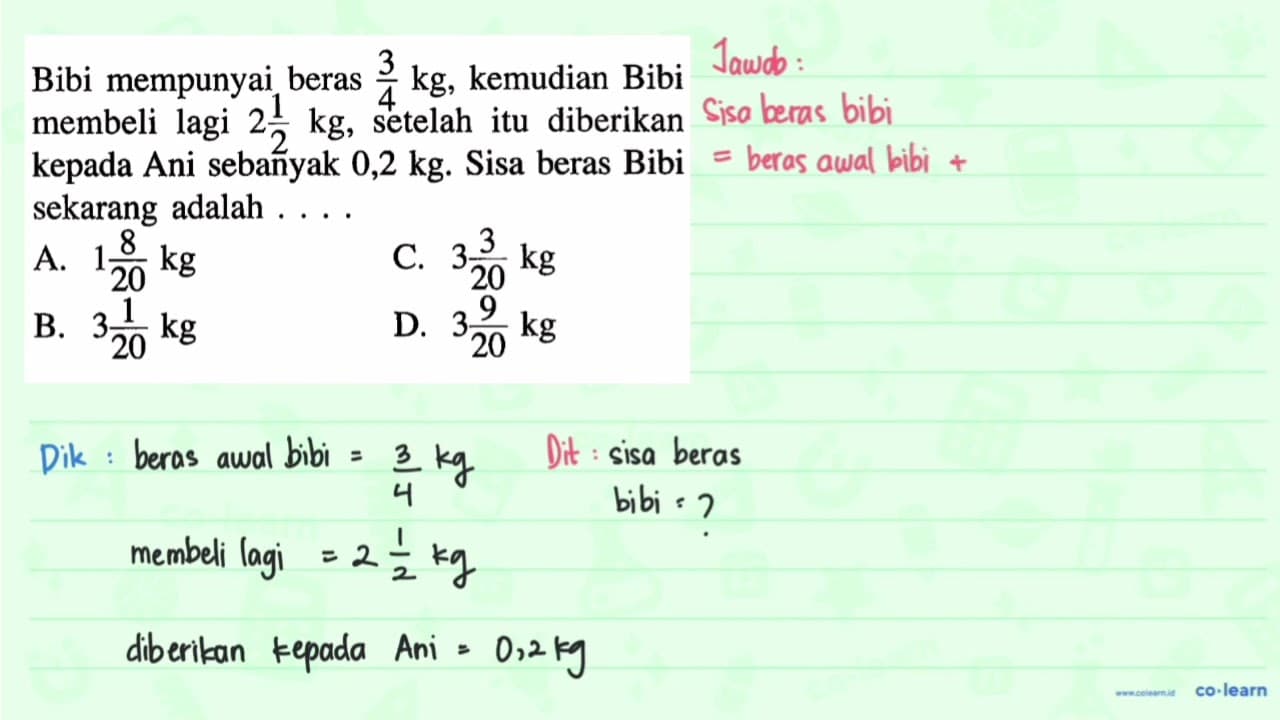 Bibi mempunyai beras 3/4 kg, kemudian Bibi
membeli lagi 2 1/2 kg, setelah itu diberikan
kepada Ani sebanyak 0,2 kg. Sisa beras Bibi
sekarang adalah . . . .
A. 1 8/20 kg
C. 3 3/20 kg
B. 3 1/20 kg
D. 3 9/20 kg
Jawab :
Sisa beras bibi
= beras awal bibi +
Dik : beras awal bibi = 3/4 kg
membeli lagi = 2 1/2 kg
diberikan kepada Ani = 0,2 kg
Dit : sisa beras
bibi = ?
www.colearn.id
co·learn